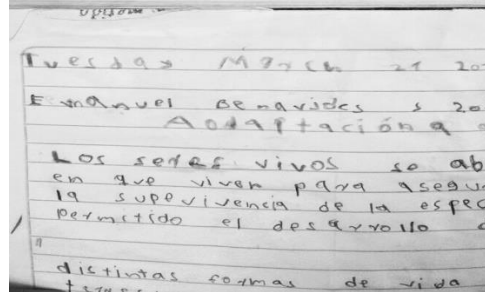 Tuesday March 21 20
Emanuel Benavides s 20
Aodaptación a
Los seres vivos se ab
en que viven para asegu
la supervivencia de la espec
permitido el desarrollo
distintas formas de vida